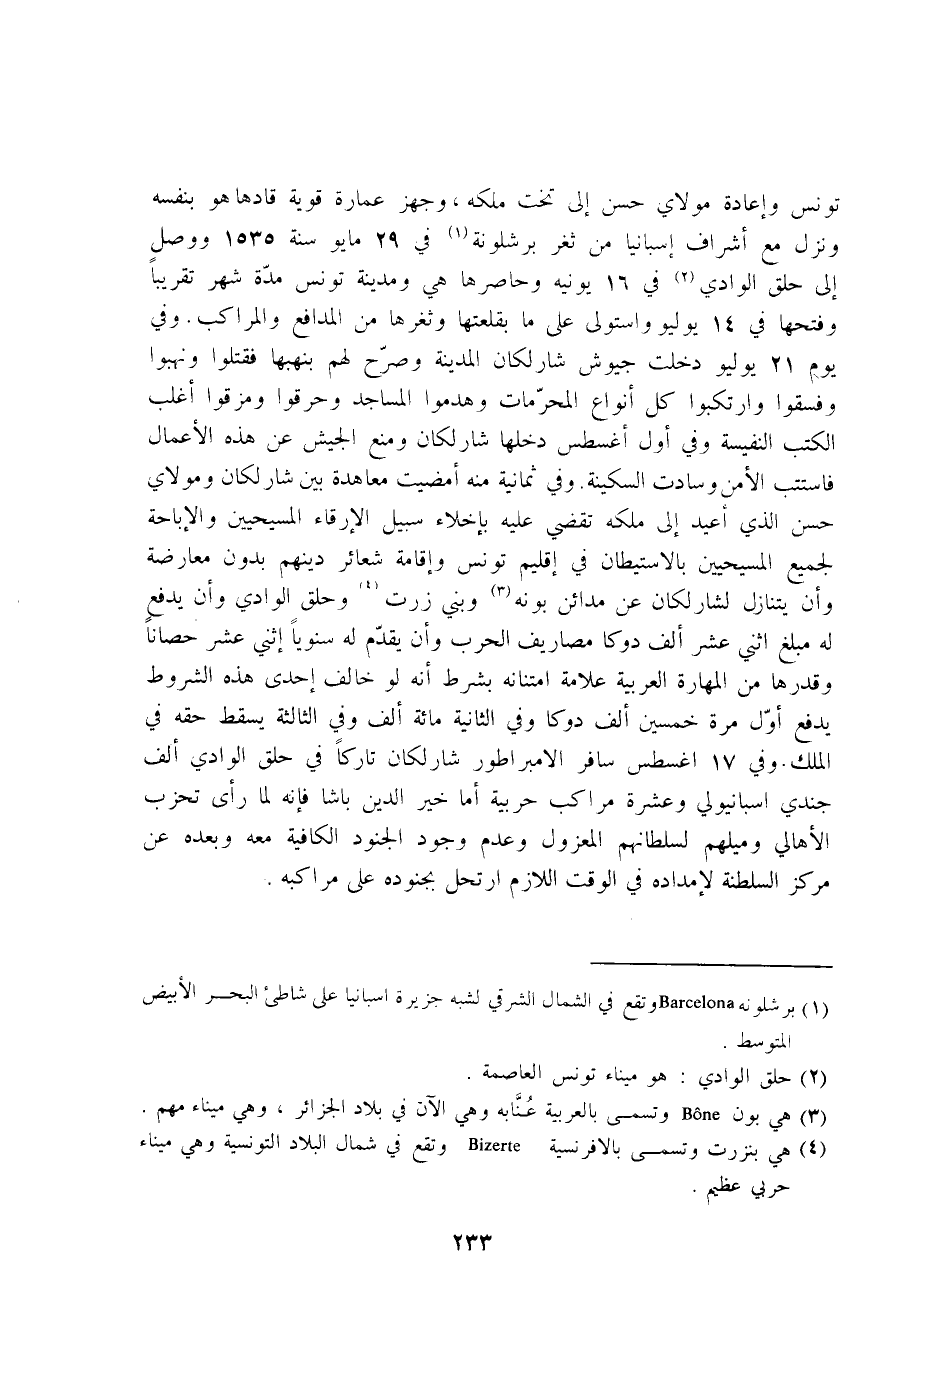 تونس وإعادة مولاي حسن إلى تخت ملكه ، وجهز عمارة قوية قادها هو بنفسه
ونزل مع أشراف إسبانيا من ثغر برشلونة(١) في ٢٩ مايو سنة ١٥٣٥ ووصل
إلى حلق الوادي(٢) في ١٦ يونيه وحاصرها هي ومدينة تونس مدّة شهر تقريباً
وفتحها في ١٤ يوليو واستولى على ما بقلعتها وثغرها من المدافع والمراكب . وفي
يوم ٢١ يوليو دخلت جيوش شارلكان المدينة وصرّح لهم بنهبها فقتلوا ونهبوا
وفسقوا وارتكبوا كل أنواع المحرّمات وهدموا المساجد وحرقوا ومزقوا أغلب
الكتب النفيسة وفي أول أغسطس دخلها شارلكان ومنع الجيش عن هذه الأعمال
فاستتب الأمن وسادت السكينة . وفي ثمانية منه أمضيت معاهدة بين شارلكان ومولاي
حسن الذي أعيد إلى ملكه تقضي عليه بإخلاء سبيل الإرقاء المسيحيين والإباحة
لجميع المسيحيين بالاستيطان في إقليم تونس وإقامة شعائر دينهم بدون معارضة
وأن يتنازل لشارلكان عن مدائن بونه(٣) وبني زرت(٤) وحلق الوادي وأن يدفع
له مبلغ اثني عشر ألف دوكا مصاريف الحرب وأن يقدّم له سنوياً إثني عشر حصاناً
وقدرها من المهارة العربية علامة امتنانه بشرط أنه لو خالف إحدى هذه الشروط
يدفع أوّل مرة خمسين ألف دوكا وفي الثانية مائة ألف وفي الثالثة يسقط حقه في
الملك . وفي ١٧ اغسطس سافر الامبراطور شارلكان تاركاً في حلق الوادي ألف
جندي اسبانيولي وعشرة مراكب حربية أما خير الدين باشا فإنه لما رأى تحزب
الأهالي وميلهم لسلطانهم المعزول وعدم وجود الجنود الكافية معه وبعده عن
مركز السلطنة لإمداده في الوقت اللازم ارتحل بجنوده على مراكبه .
(١) برشلونه Barcelona وتقع في الشمال الشرقي لشبه جزيرة اسبانيا على شاطئ البحــر الأبيض
المتوسط .
(٢) حلق الوادي : هو ميناء تونس العاصمة .
(٣) هي بون Bône وتسمــى بالعربية عُنَّابه وهي الآن في بلاد الجزائر ، وهي ميناء مهم .
(٤) هي بنزرت وتسمــى بالافرنسية Bizerte وتقع في شمال البلاد التونسية وهي ميناء
حربي عظيم .
٢٣٣